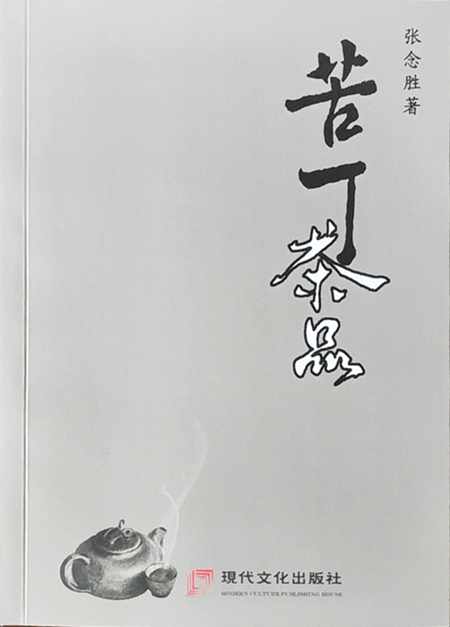 张念胜著
苦丁茶品
現代文化出版社
MODERN CULTURE PUBLISHING HOUSE